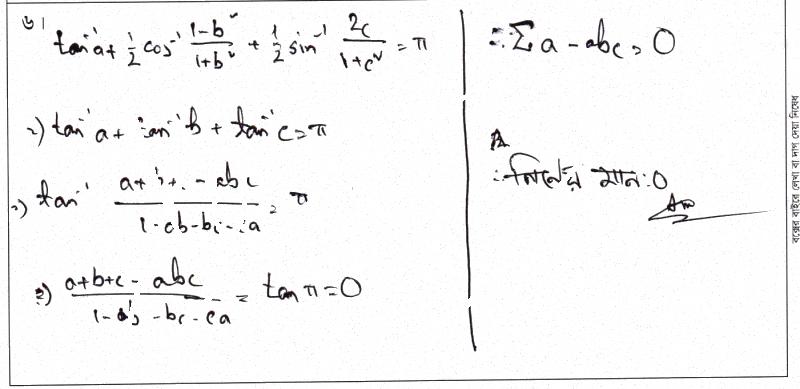 ৬।
tan⁻¹a + ½ cos⁻¹ (1-b²)/(1+b²) + ½ sin⁻¹ 2c/(1+c²) = π
⇒) tan⁻¹a + tan⁻¹b + tan⁻¹c = π
⇒) tan⁻¹ (a+b+c - abc)/(1-ab-bc-ca) = π
⇒) (a+b+c - abc)/(1-ab-bc-ca) = tan π = 0
∴ Σa - abc = 0
∴ নির্ণেয় মান: 0
Ans
বক্সের বাইরে লেখা বা দাগ দেয়া নিষেধ